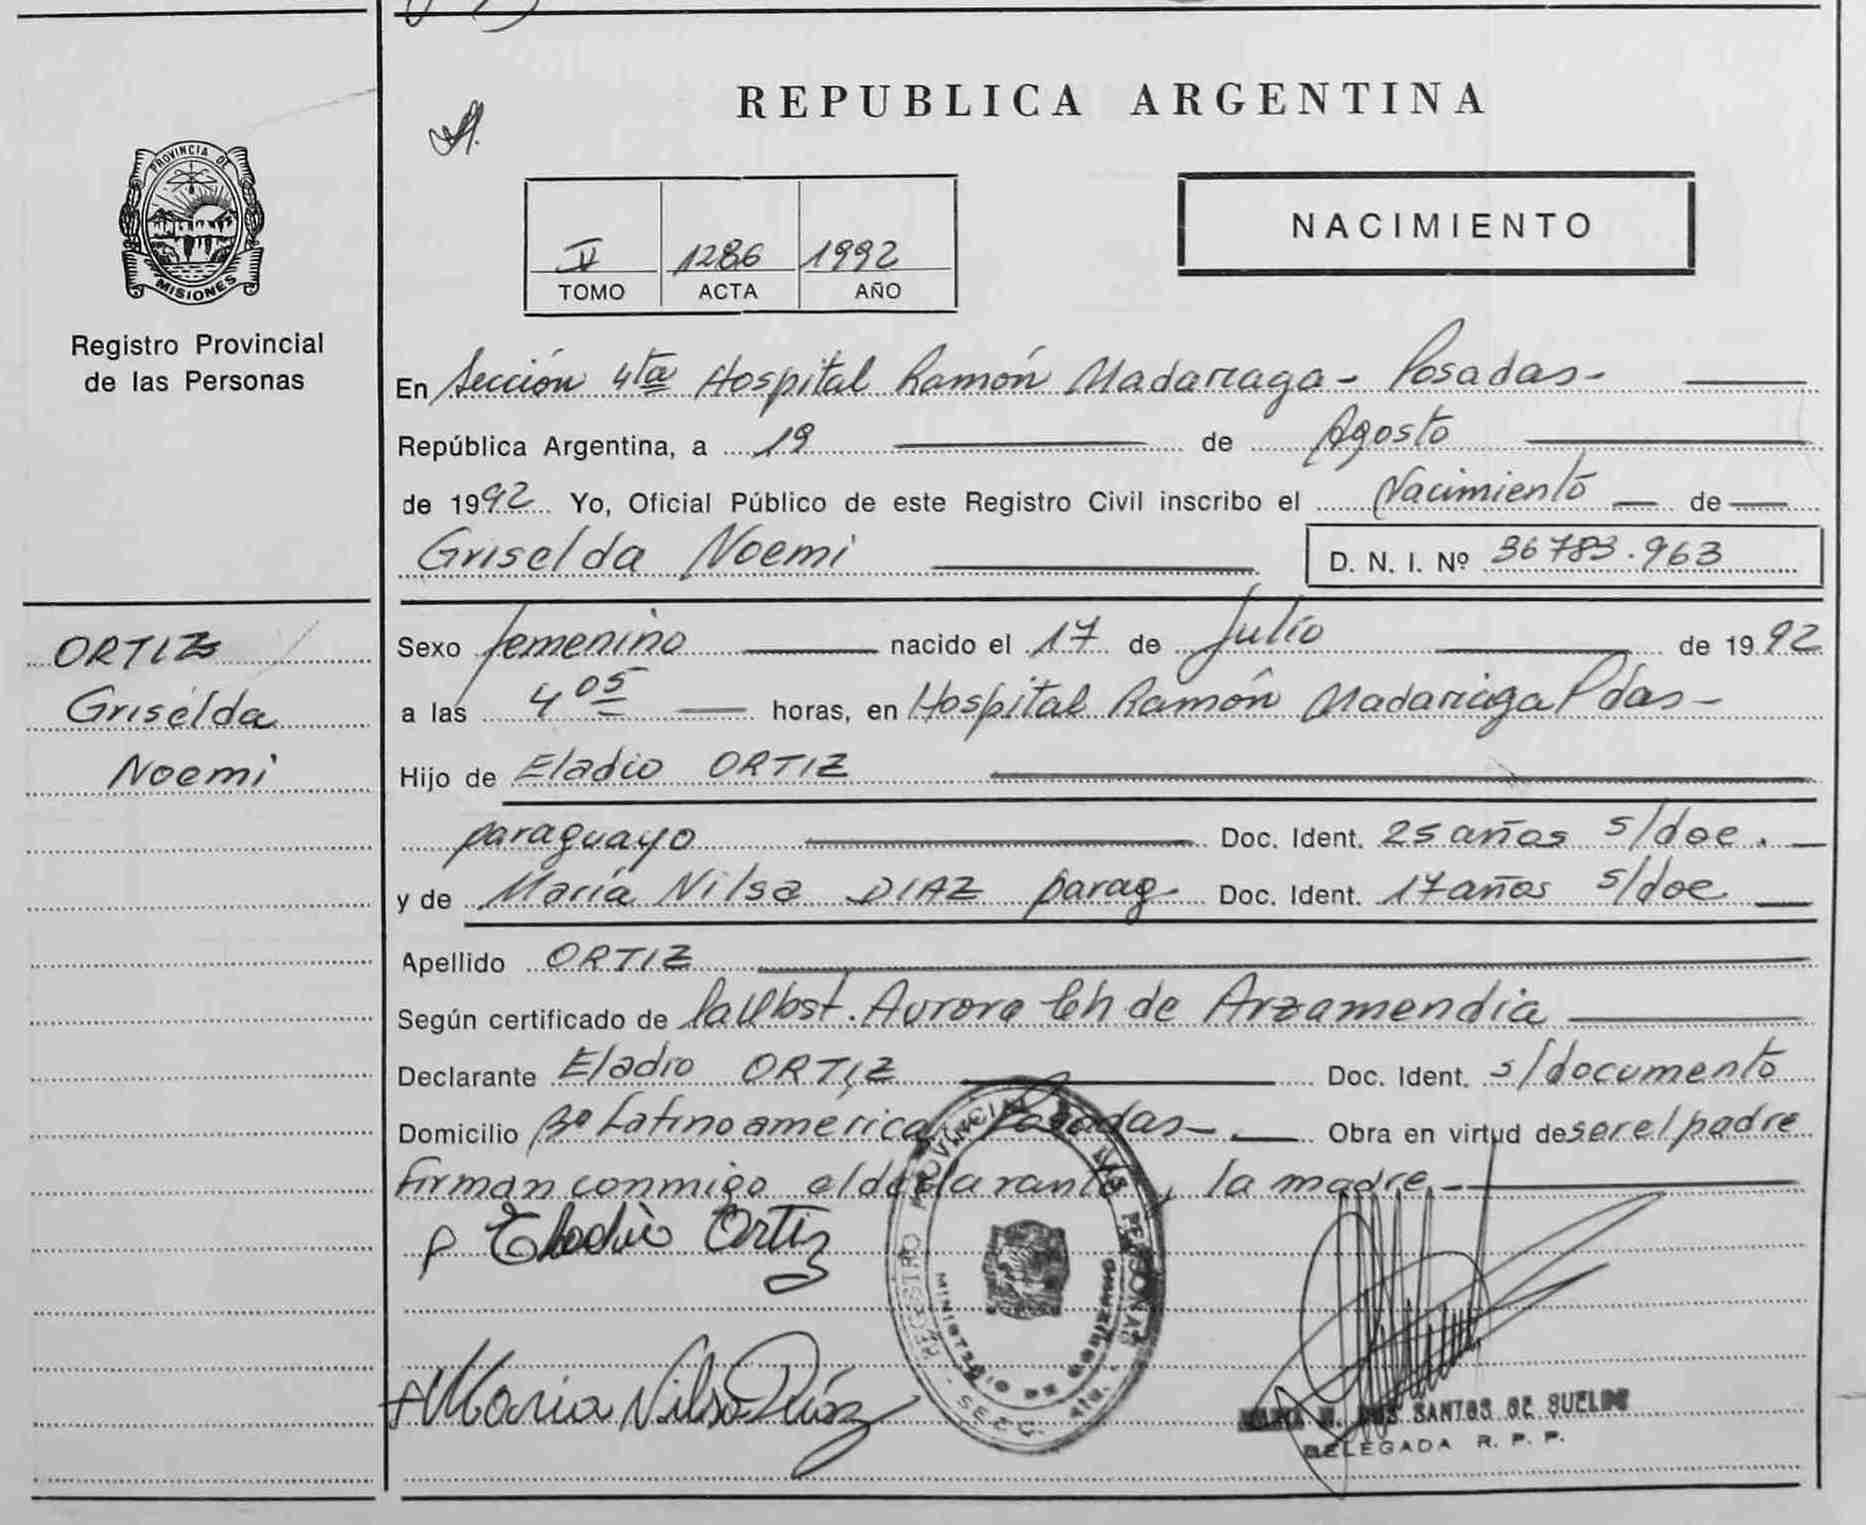 REPUBLICA ARGENTINA
PROVINCIA DE
MISIONES
Registro Provincial
de las Personas
NACIMIENTO
II 1286 1992
TOMO ACTA AÑO
En Sección 4ta Hospital Ramón Madariaga - Posadas -
República Argentina, a 19 de Agosto
de 1992 Yo, Oficial Público de este Registro Civil inscribo el Nacimiento de
Griselda Noemi D. N. I. Nº 36783.963
ORTIZ
Griselda
Noemi
Sexo femenino nacido el 17 de Julio de 1992
a las 4 05 horas, en Hospital Ramón Madariaga Pdas -
Hijo de Eladio ORTIZ
paraguayo Doc. Ident. 25 años s/doc.
y de María Nilsa DIAZ parag. Doc. Ident. 17 años s/doc
Apellido ORTIZ
Según certificado de la Obst. Aurora Ch de Arzamendia
Declarante Eladio ORTIZ Doc. Ident. s/documento
Domicilio Bº Latinoamerica Posadas - Obra en virtud de ser el padre
firman conmigo el declarante, la madre -
Eladio Ortiz
Maria Nilsa Díaz
REGISTRO PROVINCIAL DE LAS PERSONAS
MINISTERIO DE GOBIERNO
SECC. 4ta.
SANTOS DE SUELDO
DELEGADA R. P. P.